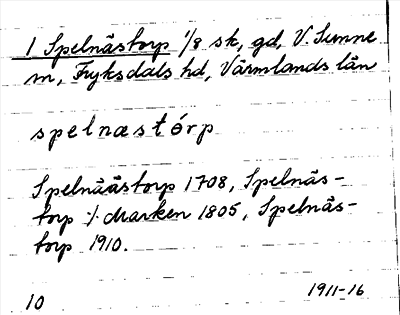 1 Spelnästorp 1/8 sk, gd, V. Sunne
m, Fryksdals hd, Värmlands län
spelnæstórp
Spelnääs torp 1708, Spelnäs-
torp ·/· Marken 1805, Spelnäs-
torp 1910.
10 1911-16